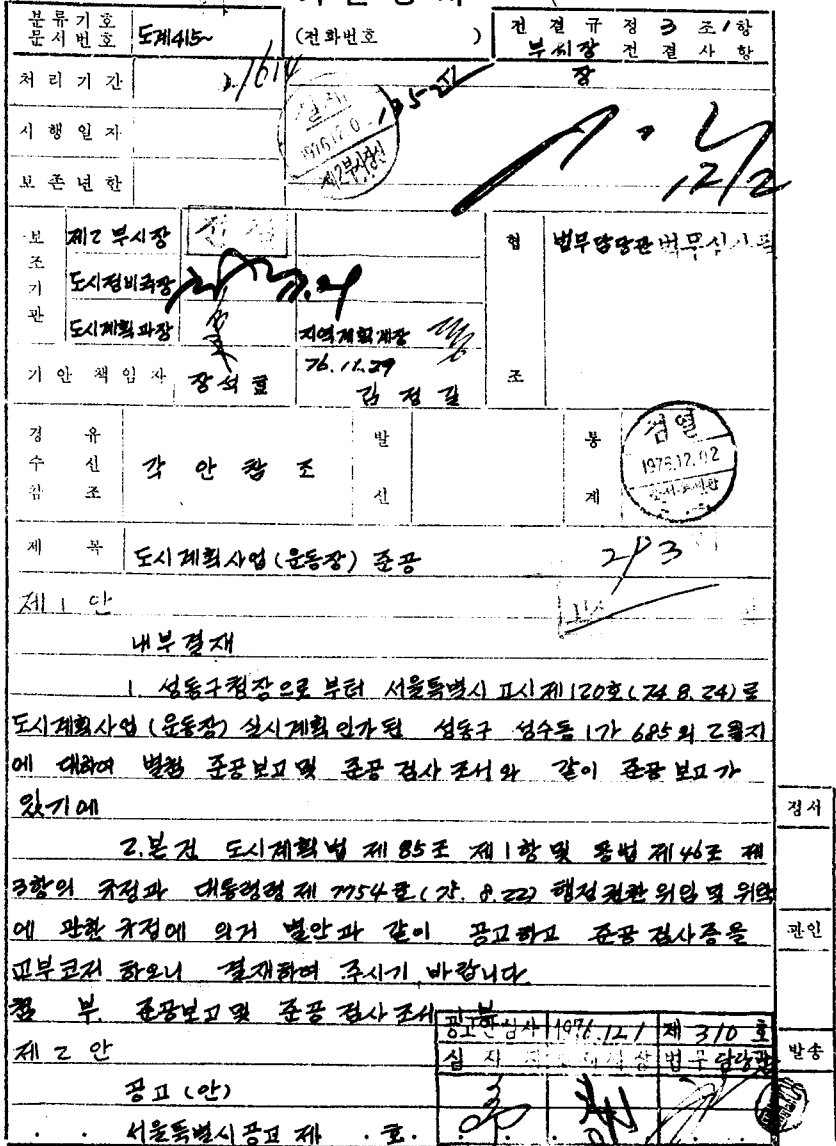 분류기호
문서번호 도계415~ (전화번호 ) 전결규정 3조 1항
부시장 전결사항
처리기간 1614 장
시행일자 1976.12.0
제2부시장실
보존년한 12/2
보조기관 제2부시장 협조 법무담당관
도시정비국장
도시계획과장 지역계획계장
76.11.29
기안책임자 장석효 김정길
경유
수신 각안참조 발신 통계 검열
참조 1976.12.02
제목 도시계획사업(운동장) 준공
제1안
내부결재
1. 성동구청장으로 부터 서울특별시 고시 제120호(74.8.24)로
도시계획사업(운동장) 실시계획 인가된 성동구 성수동 1가 685의 2필지
에 대하여 별첨 준공보고 및 준공 검사 조서와 같이 준공 보고가
있기에
2. 본건 도시계획법 제85조 제1항 및 동법 제46조 제
3항의 규정과 대통령령 제7754호(75.8.22) 행정권한 위임 및 위탁
에 관한 규정에 의거 별안과 같이 공고하고 준공 검사증을
교부코저 하오니 결재하여 주시기 바랍니다.
첨부. 준공보고 및 준공 검사 조서 1부
정서
관인
발송
공고안심사 1976.12.1 제310호
심사 법무담당관
제2안
공고(안)
서울특별시 공고 제 호.